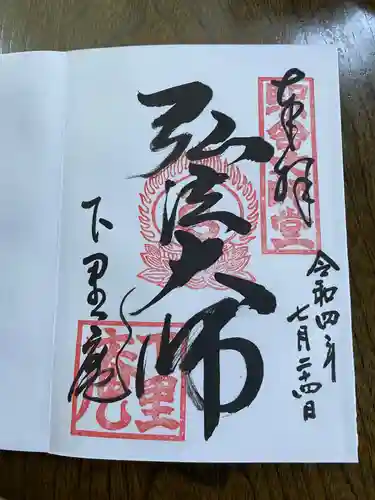 奉拝
令和四年
七月二十四日
弘法大師
下里庵